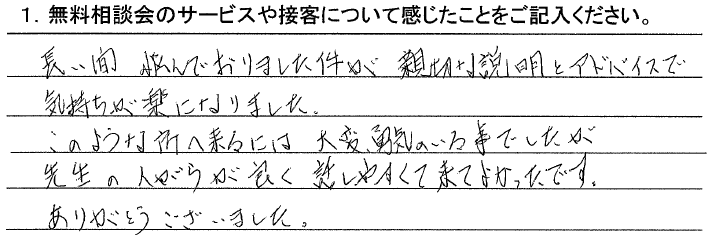 1. 無料相談会のサービスや接客について感じたことをご記入ください。
長い間 悩んでおりました件が 親切な説明とアドバイスで
気持ちが楽になりました。
このような所へ来るには 大変勇気のいる事でしたが
先生の人がらが良く 話しやすくて来てよかったです。
ありがとうございました。